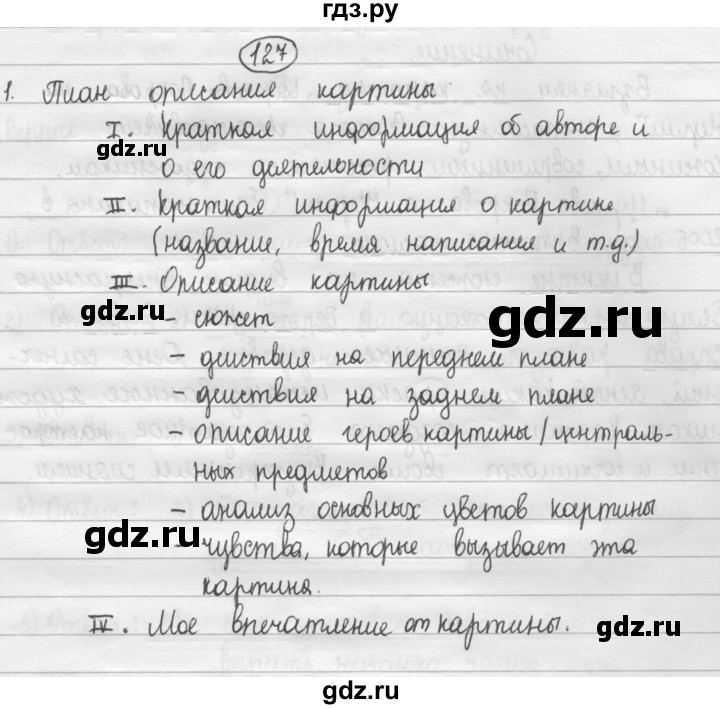 гдз.ру
127
1. План описания картины.
I. Краткая информация об авторе и
о его деятельности
II. Краткая информация о картине
(название, время написания и т.д.)
III. Описание картины
gdz.ru
- сюжет
gdz.ru
- действия на переднем плане
- действия на заднем плане
- описание героев картины/централь-
ных предметов
- анализ основных цветов картины
gdz.ru
- чувства, которые вызывает эта
картина.
IV. Мое впечатление от картины.
gdz.ru
gdz.ru